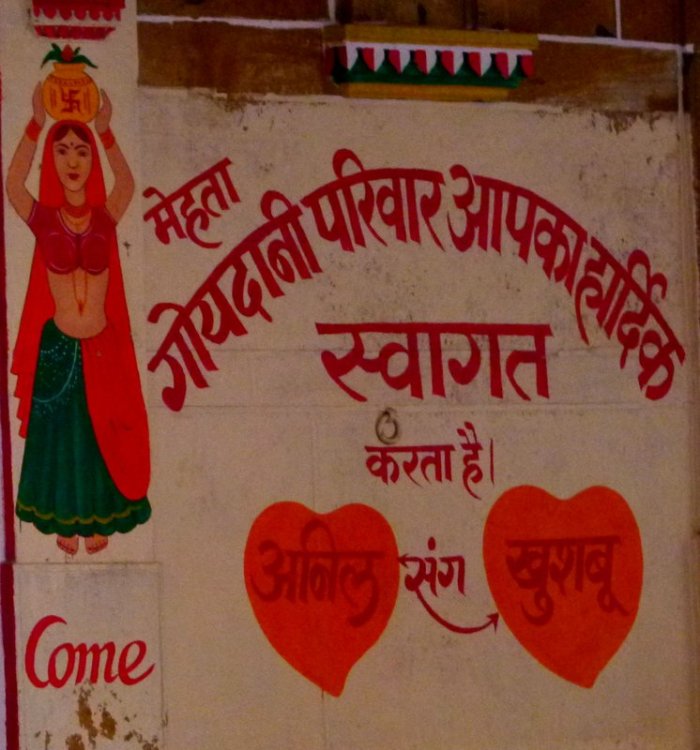 मेहता
गोयदानी परिवार आपका हार्दिक
स्वागत
करता है।
अनिल संग खुशबू
Come